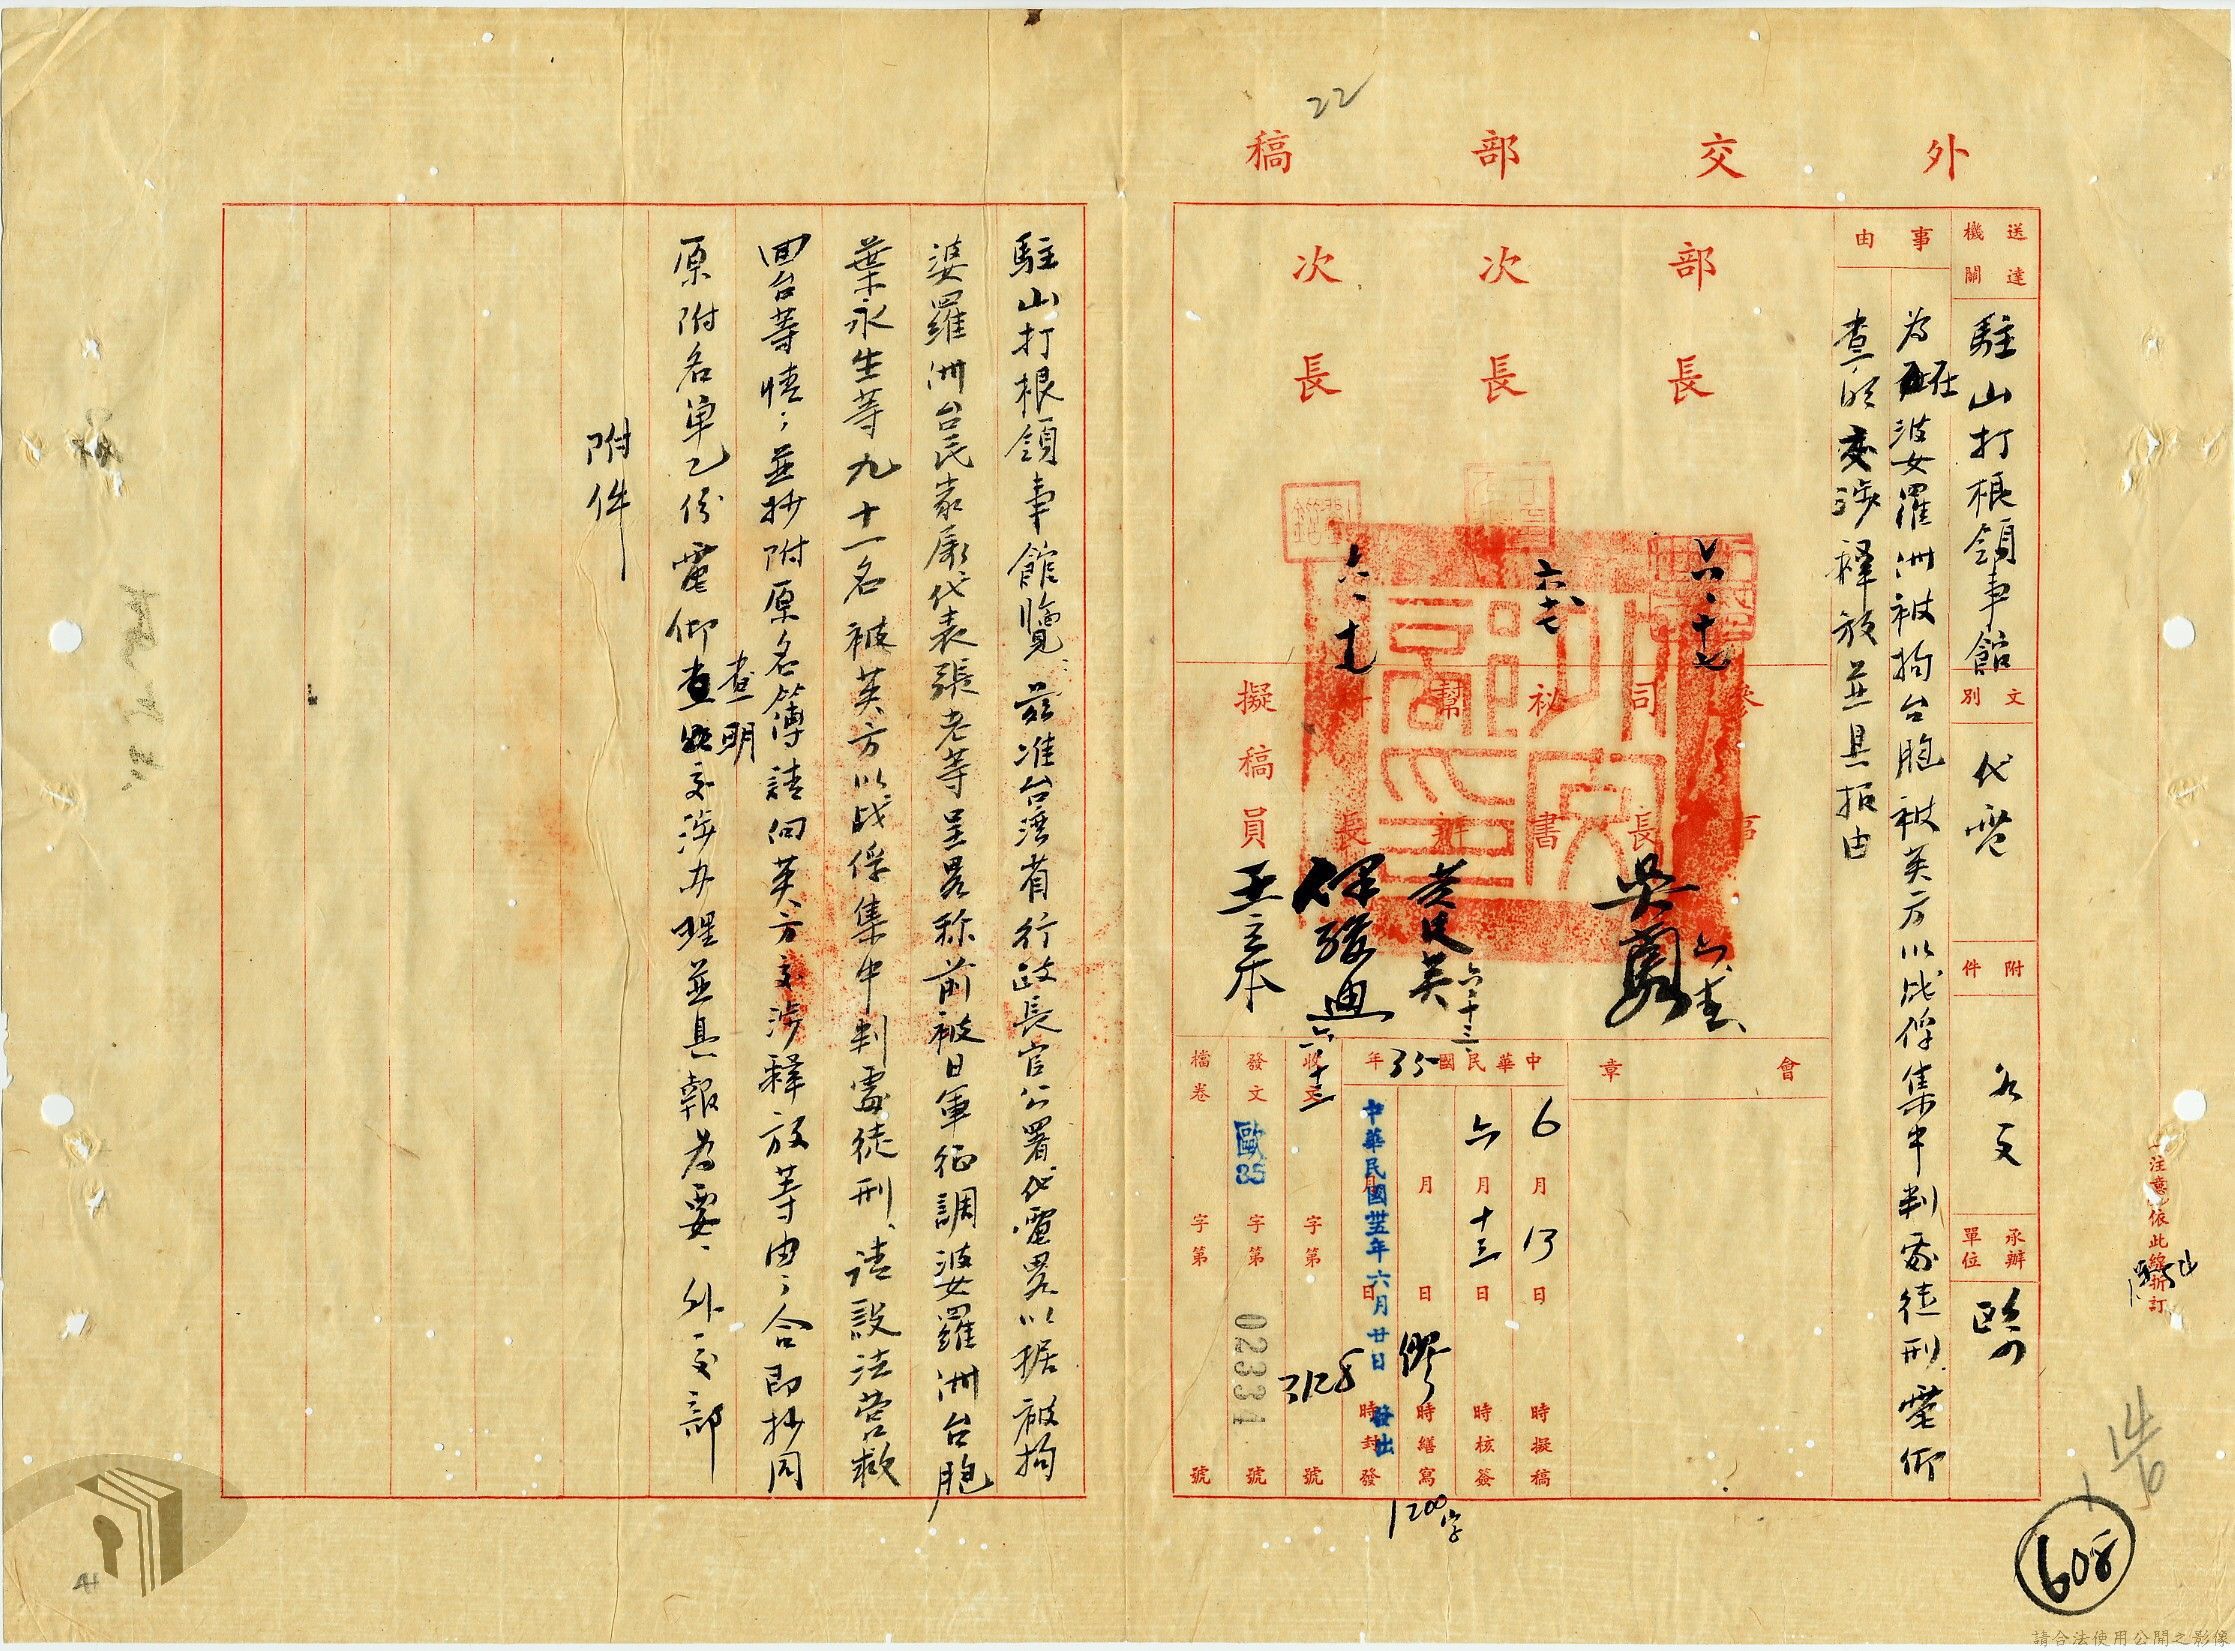 22
外交部稿
送達機關
駐山打根領事館
文別
代電
附件
如文
承辦單位
歐
事由
為在婆羅洲被拘台胞被英方以戰俘集中判處徒刑電仰
查明交涉釋放並具報由
部長
次長
次長
六、十七
參事
司長
祕書
幫辦
科長
擬稿員
王立本
會章
中華民國35年
6月13日時擬稿
六月十三日時核簽
月日時繕寫
月日時封發
中華民國卅五年六月廿日發出
收文字第3128號
發文歐35字第02334號
檔卷字第號
1200字
注意依此線折訂
608
駐山打根領事館覽：茲准台灣省行政長官公署代電畧以据被拘
婆羅洲台民眾屬代表張老等呈畧称前被日軍征調婆羅洲台胞
葉永生等九十一名被英方以战俘集中判處徒刑、請設法營救
回台等情；並抄附原名簿請向英方交涉釋放等由；合即抄同
原附名单乙份電仰查明交涉办理並具報為要、外交部
附件
請合法使用公開之影像